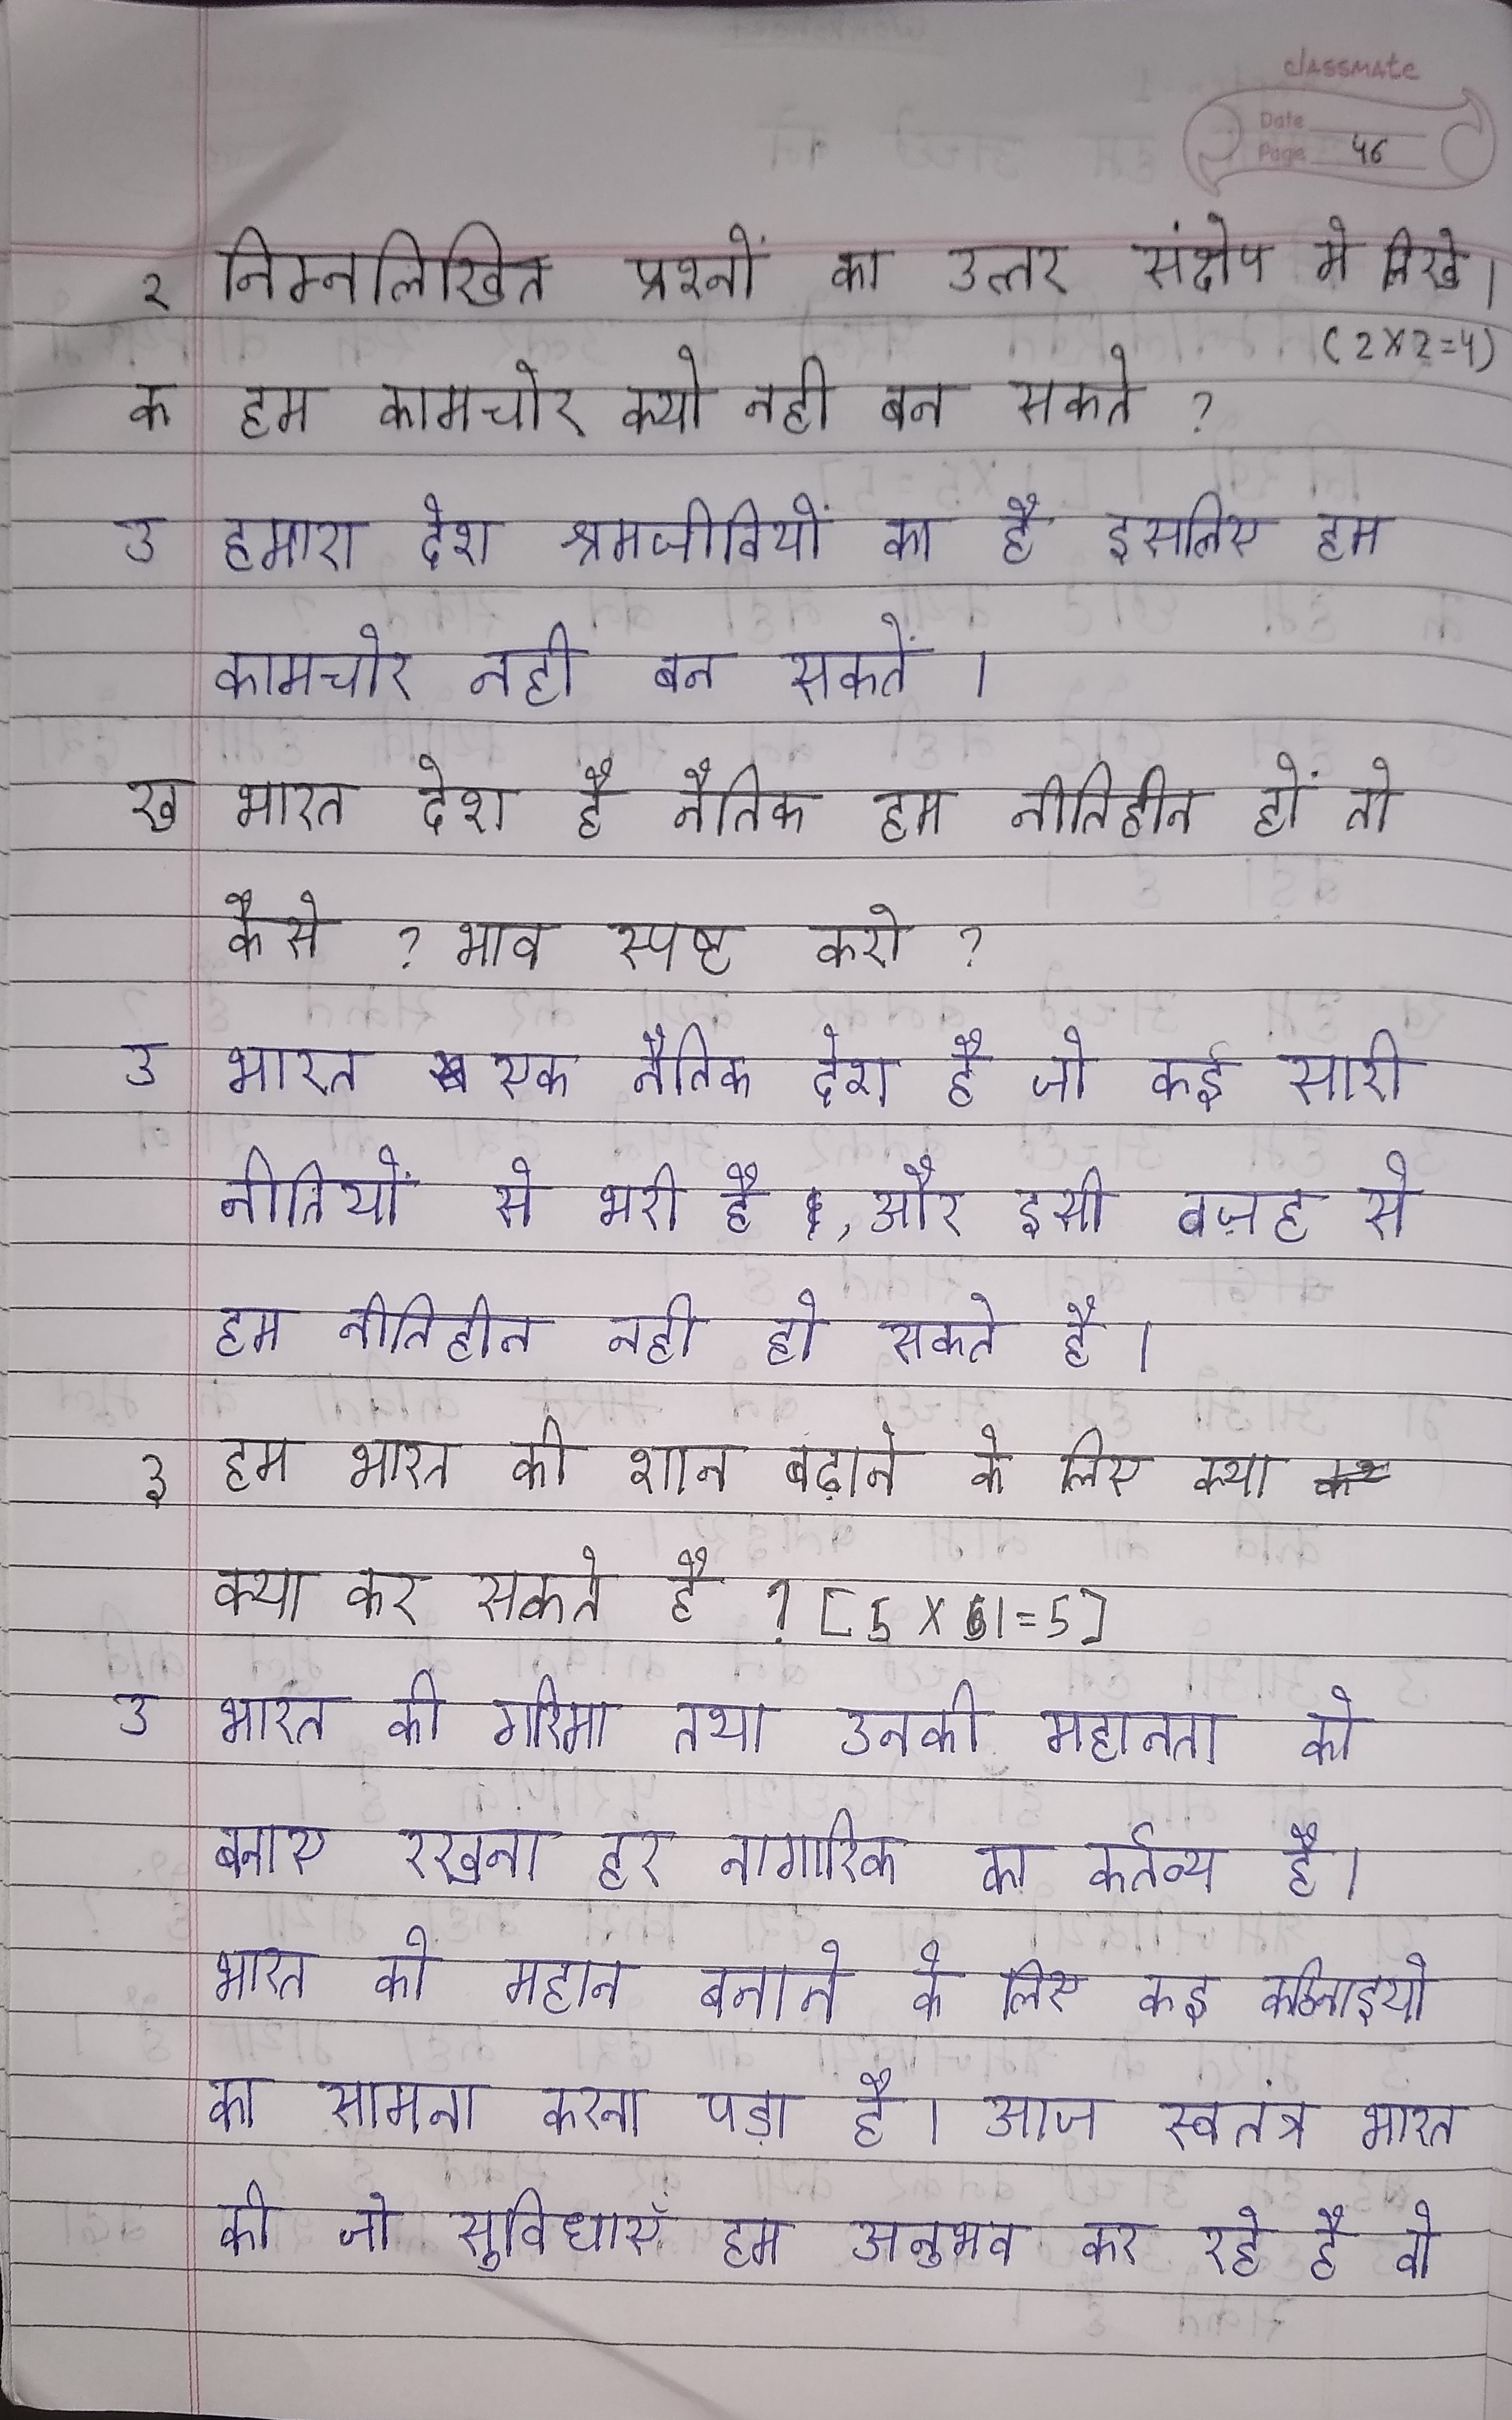 classmate
Date
Page 46
२ निम्नलिखित प्रश्नों का उत्तर संक्षेप मे लिखे।
(2×2=4)
क हम कामचोर क्यो नही बन सकते ?
उ हमारा देश श्रमजीवियों का है इसलिए हम
कामचोर नही बन सकतें ।
ख भारत देश है नैतिक हम नीतिहीन हों तो
कैसे ? भाव स्पष्ट करो ?
उ भारत एक नैतिक देश है जो कई सारी
नीतियों से भरी है , और इसी वज़ह से
हम नीतिहीन नही हो सकते है ।
३ हम भारत की शान बढ़ाने के लिए क्या
क्या कर सकते है ? [5 × 1=5]
उ भारत की गरिमा तथा उनकी महानता को
बनाए रखना हर नागरिक का कर्तव्य है।
भारत को महान बनाने के लिए कइ कठिनाइयो
का सामना करना पड़ा है । आज स्वतंत्र भारत
की जो सुविधाएँ हम अनुभव कर रहे है वो